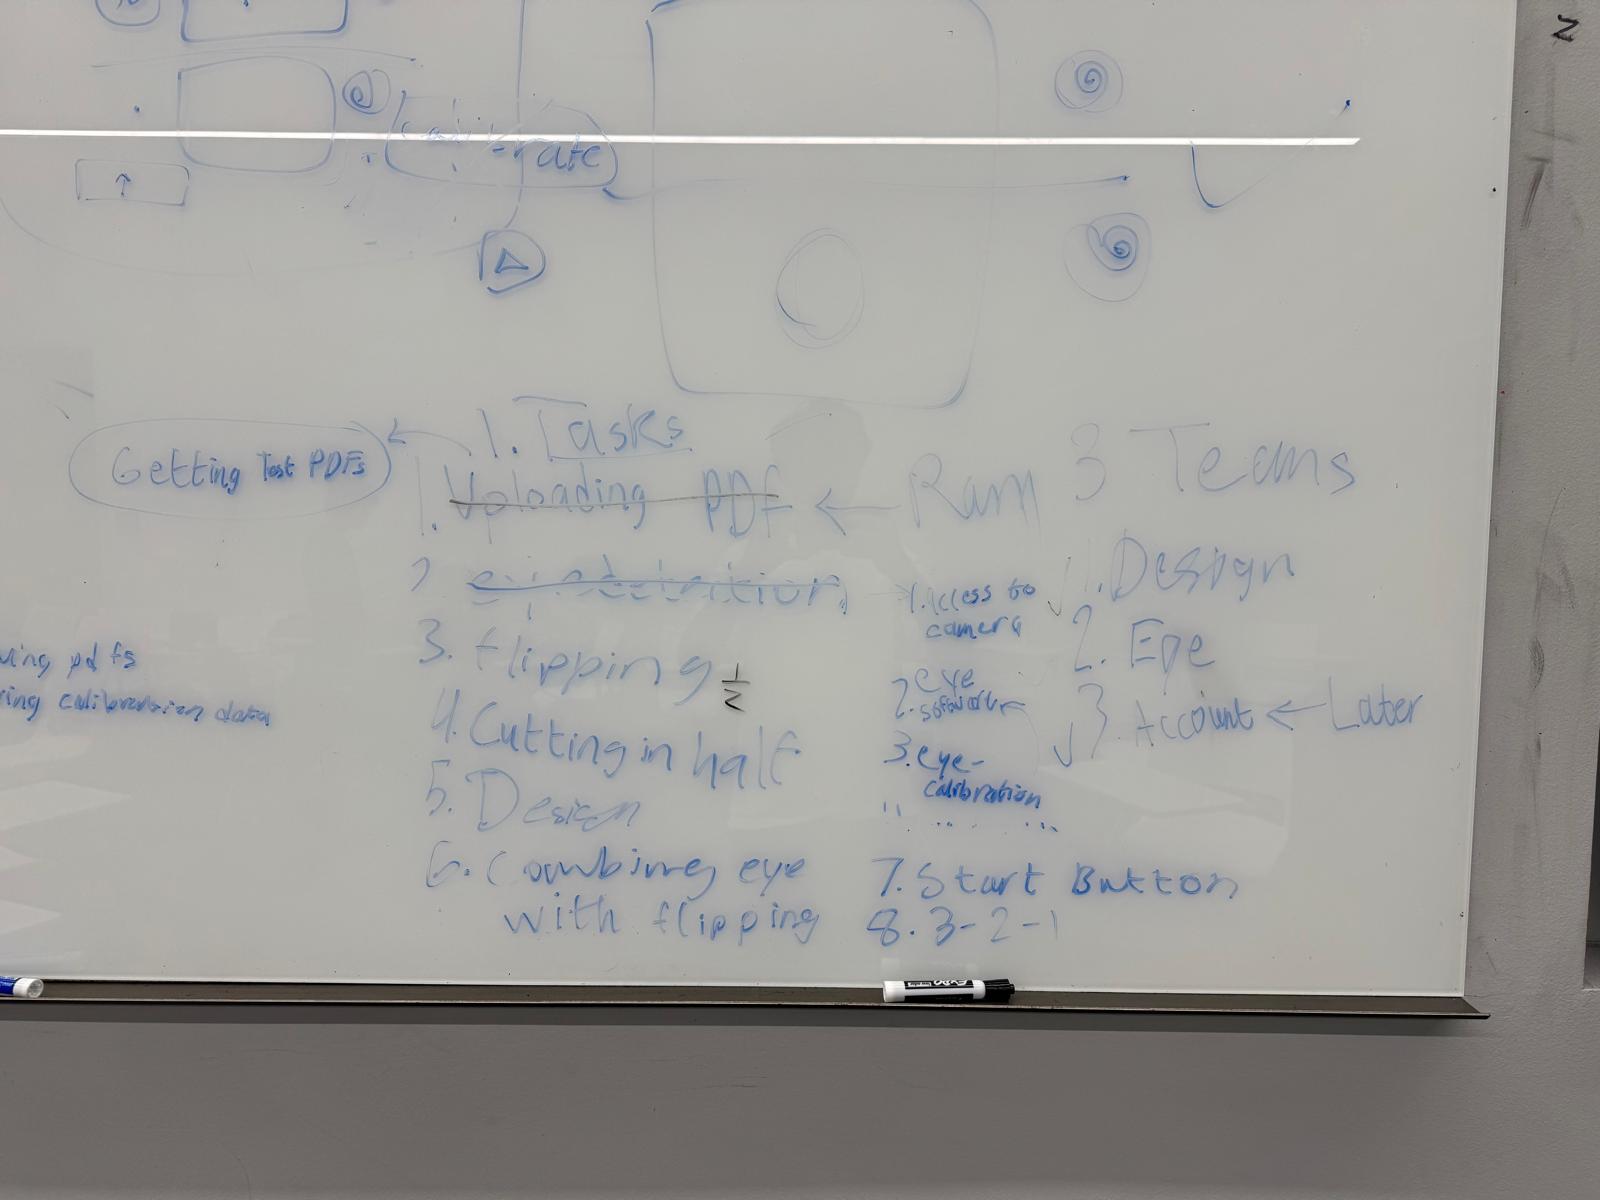 Getting Test PDFs
1. Tasks
1. Uploading PDF ← Ram
2
3. flipping 1/2
4. Cutting in half
5. Design
6. Combining eye
with flipping
1. Access to
camera
2. eye
software
3. eye-
calibration
7. Start Button
8. 3-2-1
3 Teams
1. Design
2. Eye
3. Account ← Later
pdfs
calibration data
EXPO